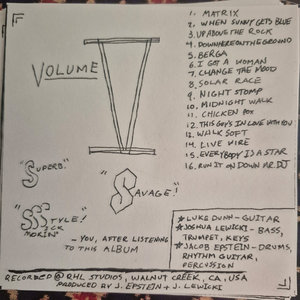 VOLUME V
"SUPERB."
"SAVAGE!"
"SSSTYLE!"
SMOKIN'
– YOU, AFTER LISTENING
TO THIS ALBUM
1. MATRIX
2. WHEN SUNNY GETS BLUE
3. UP ABOVE THE ROCK
4. DOWN HERE ON THE GROUND
5. BERGA
6. I GOT A WOMAN
7. CHANGE THE MOOD
8. SOLAR RACE
9. NIGHT STOMP
10. MIDNIGHT WALK
11. CHICKEN POX
12. THIS GUY'S IN LOVE WITH YOU
13. WALK SOFT
14. LIVE WIRE
15. EVERYBODY IS A STAR
16. RUN IT ON DOWN MR DJ
★ LUKE DUNN – GUITAR
★ JOSHUA LEWICKI – BASS,
TRUMPET, KEYS
★ JACOB EPSTEIN – DRUMS,
RHYTHM GUITAR,
PERCUSSION
RECORDED @ RHL STUDIOS, WALNUT CREEK, CA, USA
PRODUCED BY J. EPSTEIN + J. LEWICKI